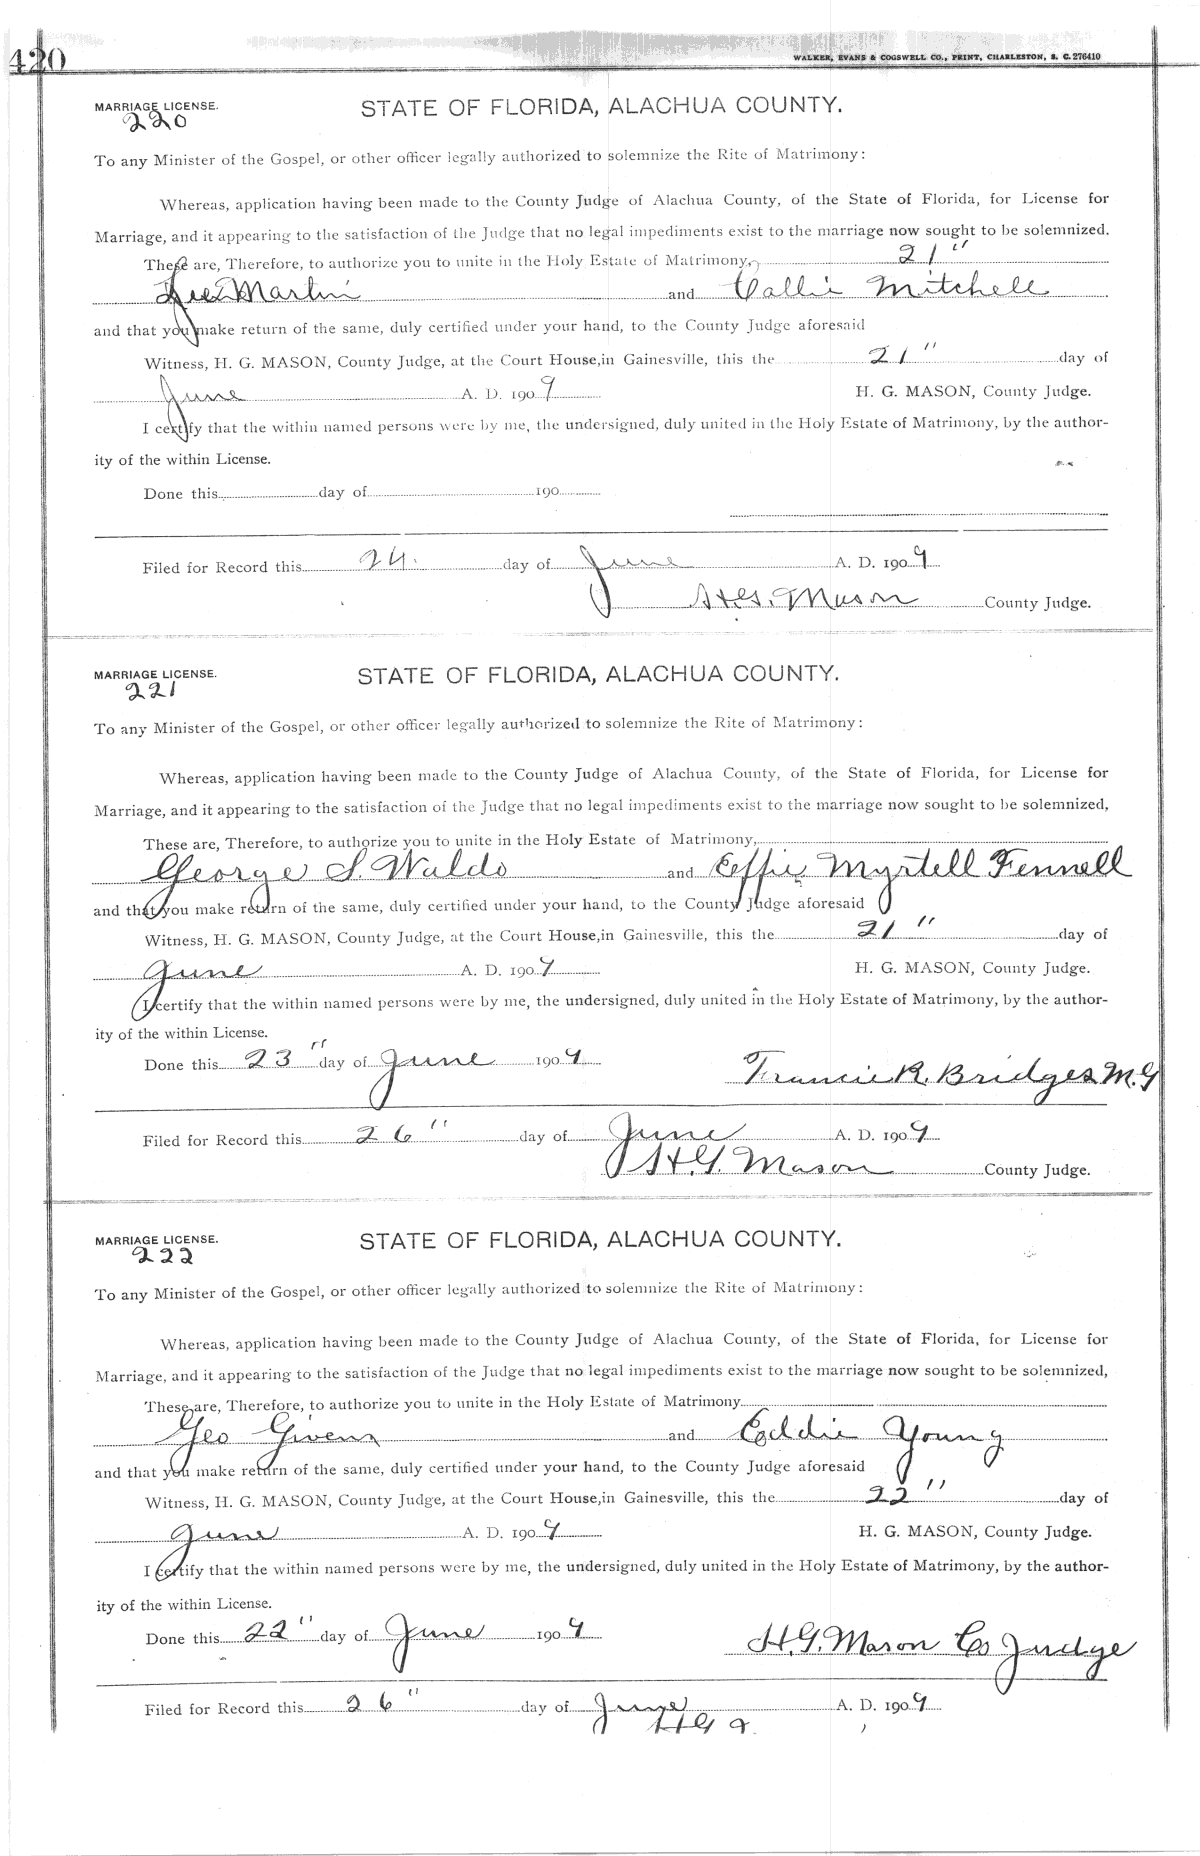 420
WALKER, EVANS & COGSWELL CO., PRINT, CHARLESTON, S. C. 276410
MARRIAGE LICENSE. STATE OF FLORIDA, ALACHUA COUNTY.
220
To any Minister of the Gospel, or other officer legally authorized to solemnize the Rite of Matrimony:
Whereas, application having been made to the County Judge of Alachua County, of the State of Florida, for License for
Marriage, and it appearing to the satisfaction of the Judge that no legal impediments exist to the marriage now sought to be solemnized.
These are, Therefore, to authorize you to unite in the Holy Estate of Matrimony, 21"
Martin and Callie Mitchell
and that you make return of the same, duly certified under your hand, to the County Judge aforesaid
Witness, H. G. MASON, County Judge, at the Court House, in Gainesville, this the 21" day of
June A. D. 1909 H. G. MASON, County Judge.
I certify that the within named persons were by me, the undersigned, duly united in the Holy Estate of Matrimony, by the author-
ity of the within License.
Done this day of 190
Filed for Record this 24. day of June A. D. 1909
H.G. Mason County Judge.
MARRIAGE LICENSE. STATE OF FLORIDA, ALACHUA COUNTY.
221
To any Minister of the Gospel, or other officer legally authorized to solemnize the Rite of Matrimony:
Whereas, application having been made to the County Judge of Alachua County, of the State of Florida, for License for
Marriage, and it appearing to the satisfaction of the Judge that no legal impediments exist to the marriage now sought to be solemnized,
These are, Therefore, to authorize you to unite in the Holy Estate of Matrimony,
George S. Waldo and Effie Myrtell Fennell
and that you make return of the same, duly certified under your hand, to the County Judge aforesaid
Witness, H. G. MASON, County Judge, at the Court House, in Gainesville, this the 21" day of
June A. D. 1909 H. G. MASON, County Judge.
I certify that the within named persons were by me, the undersigned, duly united in the Holy Estate of Matrimony, by the author-
ity of the within License.
Done this 23" day of June 1909 Francis R. Bridges M.G
Filed for Record this 26" day of June A. D. 1909
H.G. Mason County Judge.
MARRIAGE LICENSE. STATE OF FLORIDA, ALACHUA COUNTY.
222
To any Minister of the Gospel, or other officer legally authorized to solemnize the Rite of Matrimony:
Whereas, application having been made to the County Judge of Alachua County, of the State of Florida, for License for
Marriage, and it appearing to the satisfaction of the Judge that no legal impediments exist to the marriage now sought to be solemnized,
These are, Therefore, to authorize you to unite in the Holy Estate of Matrimony
Geo Givens and Eddie Young
and that you make return of the same, duly certified under your hand, to the County Judge aforesaid
Witness, H. G. MASON, County Judge, at the Court House, in Gainesville, this the 22" day of
June A. D. 1909 H. G. MASON, County Judge.
I certify that the within named persons were by me, the undersigned, duly united in the Holy Estate of Matrimony, by the author-
ity of the within License.
Done this 22" day of June 1909 H.G. Mason Co Judge
Filed for Record this 26" day of June A. D. 1909